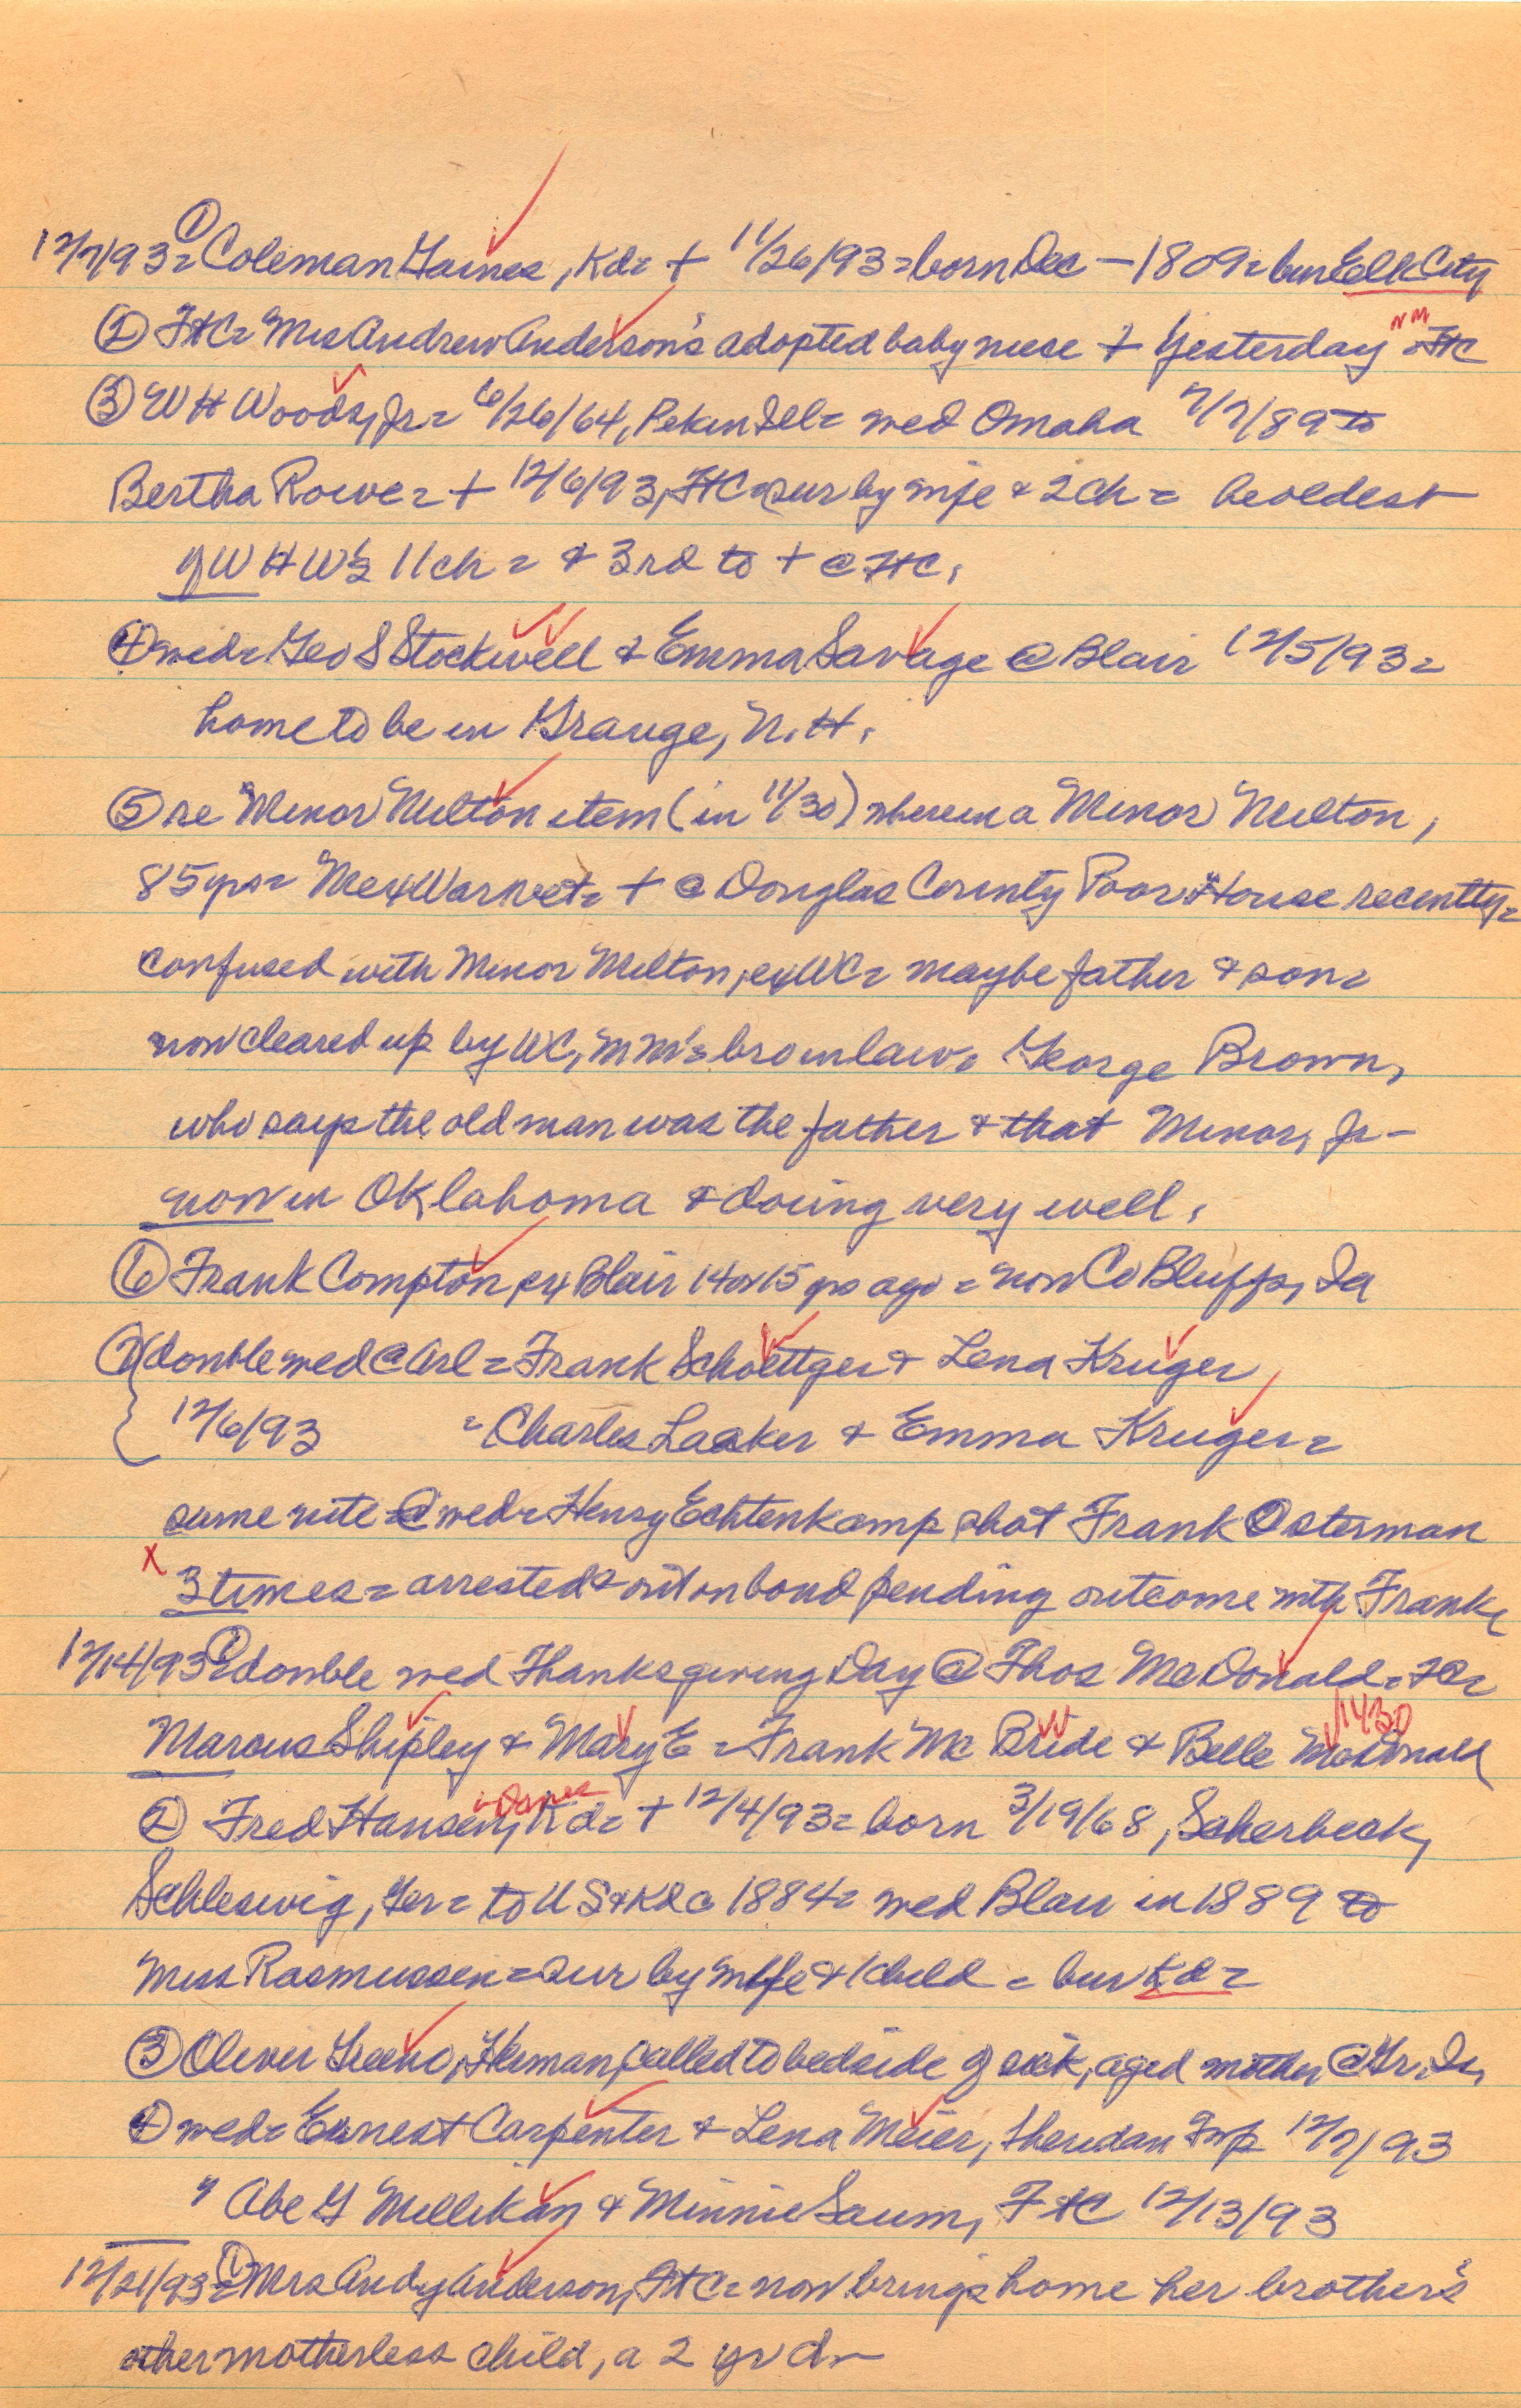 ①
12/7/93 = Coleman Gaines, Kd = + 11/26/93 = born Dec - 1809 = bur Elk City
② FtC = Mrs Andrew Anderson's adopted baby niece + yesterday = FtC
NM
③ WH Woods, Jr = 6/26/64, Pekin Ill = wed Omaha 7/7/89 to
Bertha Rowe = + 12/6/93, FtC = sur by wife & 2 ch = he oldest
of WHW's 11 ch = & 3rd to + @ FtC.
④ wed = Geo S Stockwell & Emma Savage @ Blair 12/5/93 =
home to be in Grange, N.H.
⑤ re Minor Milton item (in 11/30) wherein a Minor Milton,
85 yrs = Mex War vet = + @ Douglas County Poor House recently =
confused with Minor Milton, ex WC = maybe father & son =
now cleared up by WC, MM's broinlaw = George Brown,
who says the old man was the father & that Minor, Jr -
now in Oklahoma & doing very well.
⑥ Frank Compton, ex Blair 14 or 15 yrs ago = now Co Bluffs, Ia
⑦ double wed @ Arl = Frank Schoettger & Lena Kruger
12/6/93 = Charles Laaker & Emma Kruger =
same nite @ wed = Henry Echtenkamp shot Frank Osterman
x 3 times = arrested & out on bond pending outcome with Frank
12/14/93 ① = double wed Thanksgiving Day @ Thos McDonald =
Marcus Shipley & Mary E = Frank McBride & Belle McDonald
1430
② Fred Hansen, Kd = + 12/4/93 = born 3/19/68, Scherbeck,
- Danes
Schleswig, Ger = to US & Kd c 1884 = wed Blair in 1889 to
Miss Rasmussen = sur by wife & 1 child = bur Kd =
③ Oliver Greeno, Herman, called to bedside of sick, aged mother @ Gr. Is,
④ wed = Ernest Carpenter & Lena Meier, Sheridan Twp 12/7/93
" Abe G Millikan & Minnie Saum, FtC 12/13/93
12/21/93 ① = Mrs Andy Anderson, FtC = now brings home her brother's
other motherless child, a 2 yr d -